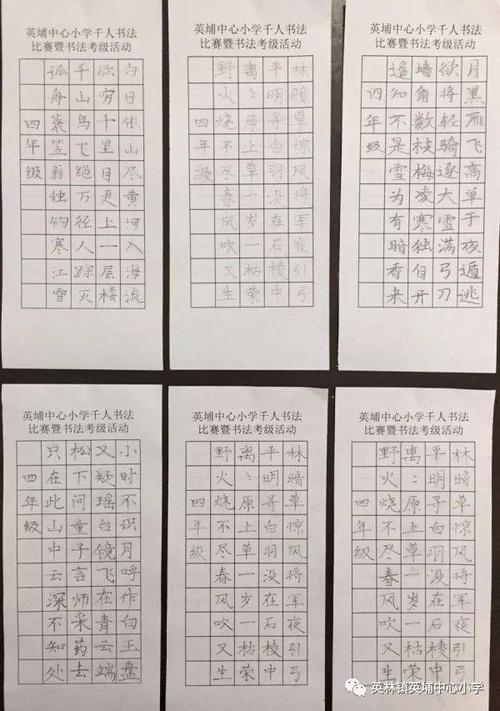 英埔中心小学千人书法
比赛暨书法考级活动
白日依山尽黄河入海流
欲穷千里目更上一层楼
千山鸟飞绝万径人踪灭
孤舟蓑笠翁独钓寒江雪
四年级
英埔中心小学千人书法
比赛暨书法考级活动
林暗草惊风将军夜引弓
平明寻白羽没在石棱中
离〻原上草一岁一枯荣
野火烧不尽春风吹又生
四年级
英埔中心小学千人书法
比赛暨书法考级活动
月黑雁飞高单于夜遁逃
欲将轻骑逐大雪满弓刀
墙角数枝梅凌寒独自开
遥知不是雪为有暗香来
四年级
英埔中心小学千人书法
比赛暨书法考级活动
小时不识月呼作白玉盘
又疑瑶台镜飞在青云端
松下问童子言师采药去
只在此山中云深不知处
四年级
英埔中心小学千人书法
比赛暨书法考级活动
林暗草惊风将军夜引弓
平明寻白羽没在石棱中
离〻原上草一岁一枯荣
野火烧不尽春风吹又生
四年级
英埔中心小学千人书法
比赛暨书法考级活动
林暗草惊风将军夜引弓
平明寻白羽没在石棱中
离〻原上草一岁一枯荣
野火烧不尽春风吹又生
四年级
英林镇英埔中心小学